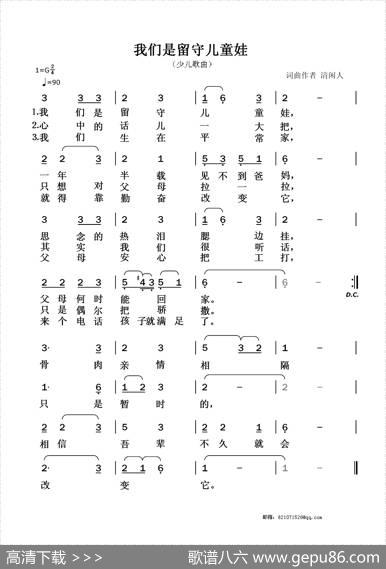 我们是留守儿童娃
(少儿歌曲)
1=G 2/4
♩=90
词曲作者 清闲人
3 3 3 | 2 3 | 1 6 3 | 2 - |
1.我 们是 留 守 儿 童 娃,
2.心 中的 话 儿 一 大 把,
3.我 们 生 在 平 常 家,
2 2 3 | 2 3 | 5 3 5 3 | 2 - |
一 年 半 载 见 不 到 爸 妈,
只 想 对 父 母 拉 一 拉,
就 得 靠 勤 奋 改 变 它,
3 3 3 | 2 3 | 6 3 | 2 - |
思 念 的 热 泪 腮 边 挂,
其 实 我们 很 听 话,
父 母 安 心 把 工 打,
2 2 3 | 5 4 3 5 1 | 6 - | 6 - :|
D.C.
父 母 何时 能 回 家。
只 是 偶尔 把 骄 撒。
来 个 电话 孩子就满 足 了。
3· 3 | 2 3 | 5 3 2 | 1 - |
骨 肉 亲 情 相 隔
1· 6 | 1 2 3 | 2 - | 2 - |
只 是 暂 时 的,
2 2 3 | 2 3 | 5 3 5 | 3 - |
相 信 吾 辈 不 久 就 会
2· 3 | 2 1 6 | 6 - | 6 - ‖
改 变 它。
邮箱: 821071529@qq.com
高清下载 >>>
歌谱八六 www.gepu86.com